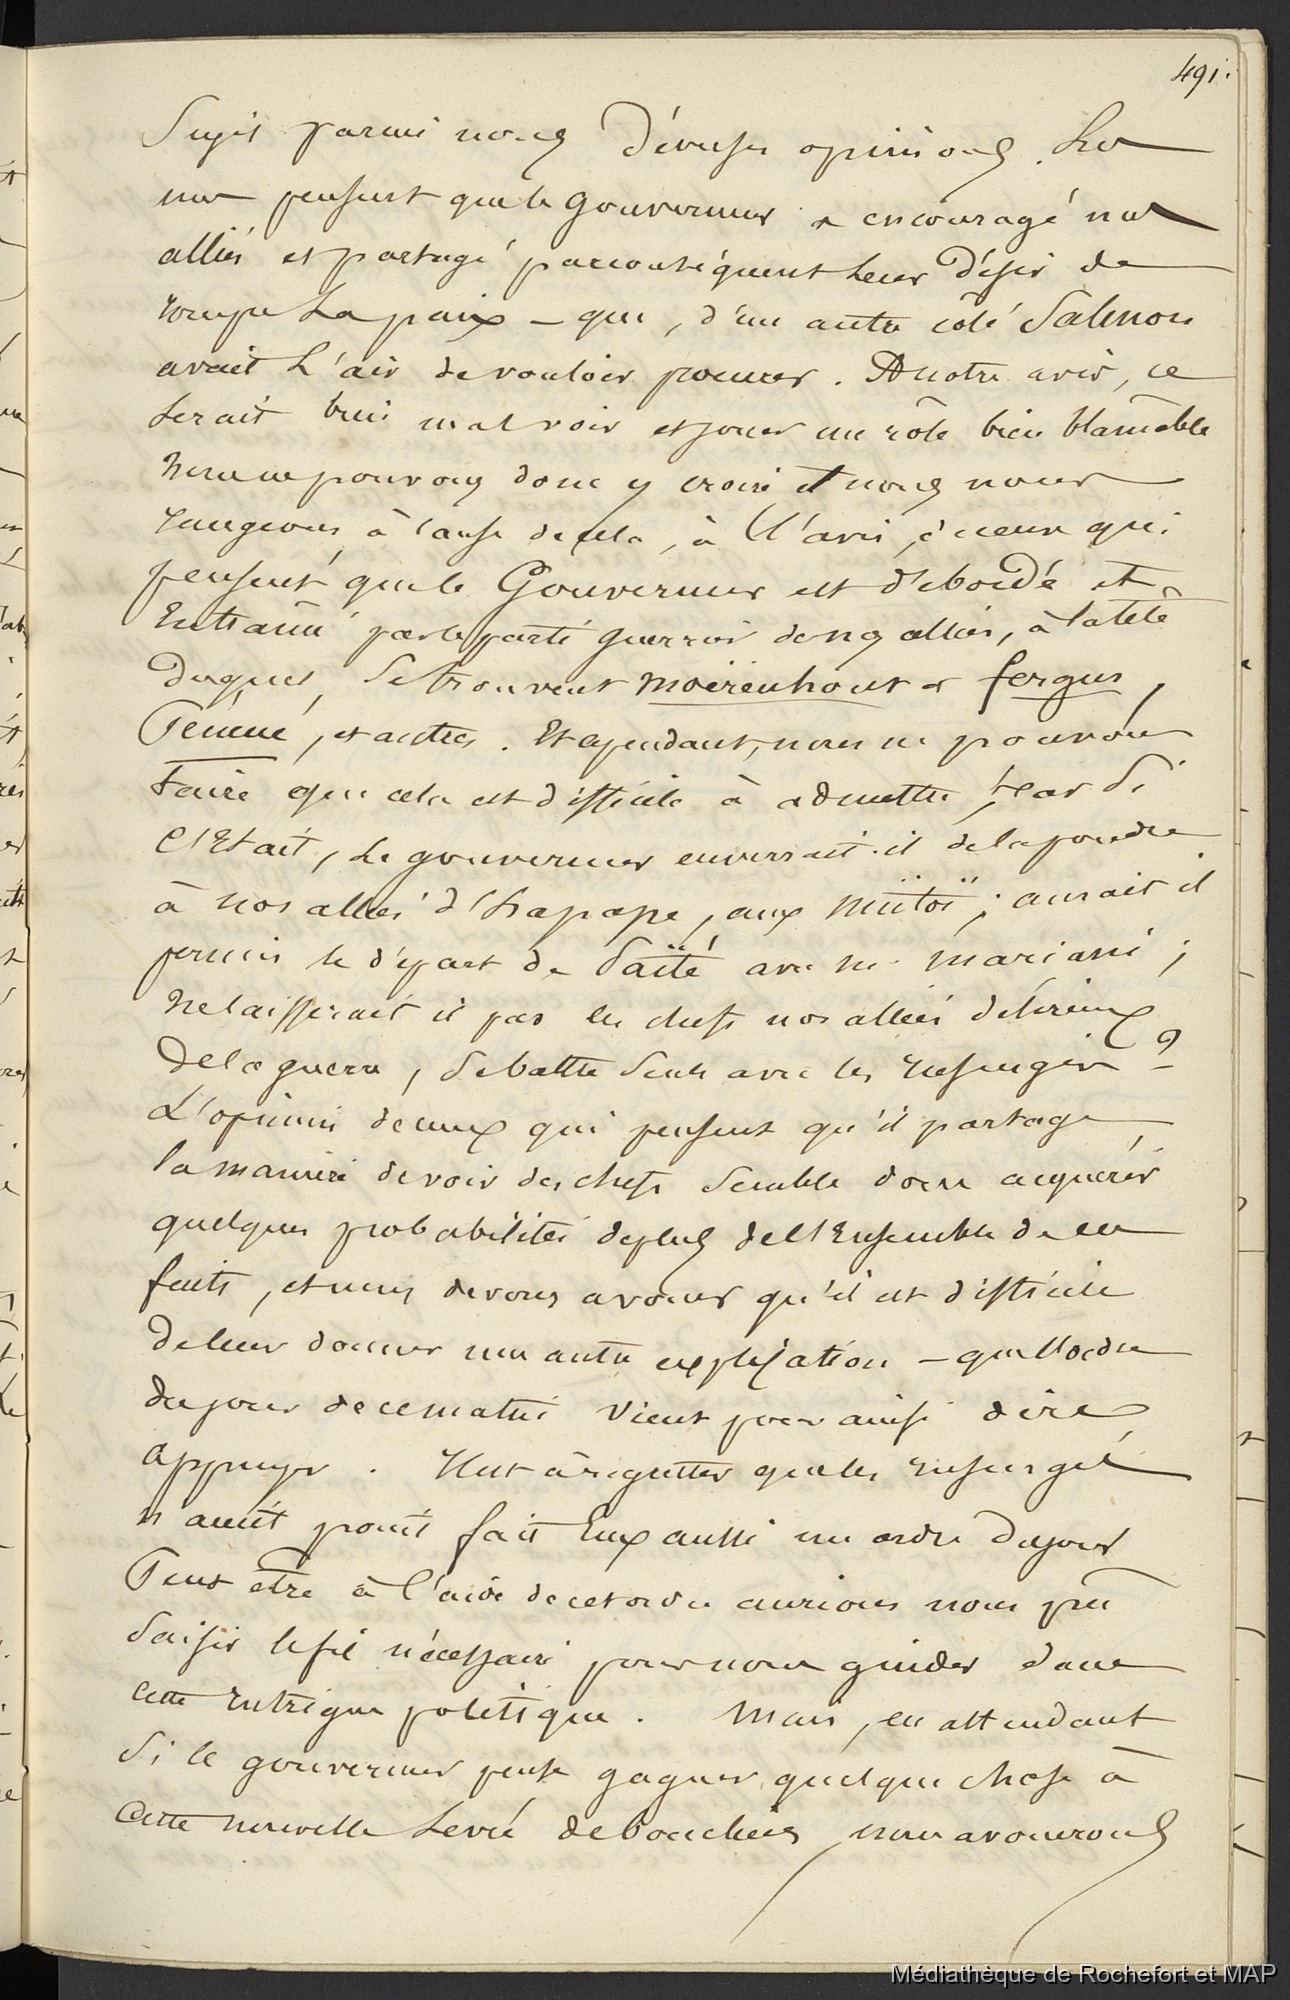 491.
Sujet parmi nous diverses opinions. Les
uns pensent que le gouverneur a encouragé nos
alliés et partagé par conséquent leur désir de
rompre la paix – que, d'un autre côté Salmon
avait l'air de vouloir pousser. A notre avis, ce
serait bien mal voir et jouer un rôle bien blamable
nous ne pouvons donc y croire et nous nous
rangeons, à cause de cela, à l'avis, de ceux qui
pensent que le Gouverneur est débordé et
Entrainé par le parti guerrier de nos alliés, à la tête
duquel, se trouvent moërenhout et fergus,
Péneué, et autres. Et cependant, nous ne pouvons
taire que cela est difficile à admettre, car si
c'Etait, le gouverneur enverrait-il de la poudre
à nos alliés d'hapape, aux mïitoï; aurait il
permis le départ de Païté avec m. mariani;
ne laisserait il pas les chefs nos alliés désireux
de la guerre, se battre seuls avec les insurgés ?
L'opinion de ceux qui pensent qu'il partage
la manière de voir des chefs semble donc acquérir
quelques probabilités de plus de l'Ensemble de ces
faits, et nous devons avouer qu'il est difficile
de leur donner une autre explication – que l'ordre
du jour de ce matin vient pour ainsi dire
appuyer. Il est à regretter que les insurgés
n'aient point fait Eux aussi un ordre du jour
Peut être à l'aide de cet ordre aurions nous pu
saisir le fil nécessaire pour nous guider dans
cette intrigue politique. Mais, en attendant
Si le gouverneur pense gagner quelque chose à
cette nouvelle levée de boucliers, nous avouerons
Médiathèque de Rochefort et MAP